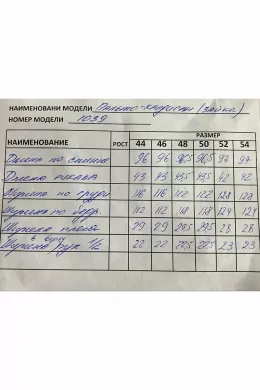 НАИМЕНОВАНИ МОДЕЛИ Пальто-кардиган (зайка)
НОМЕР МОДЕЛИ 1039
РАЗМЕР
НАИМЕНОВАНИЕ РОСТ 44 46 48 50 52 54
Длина по спинке 96 96 96,5 96,5 97 97
Длина рукава 43 43 43,5 43,5 42 42
Ширина по груди 116 116 122 122 128 128
Ширина по бедр. 112 112 118 118 124 124
Ширина плеча 29 29 28 28
в верх
Ширина рук 1/2 22 22 22,5 23 23